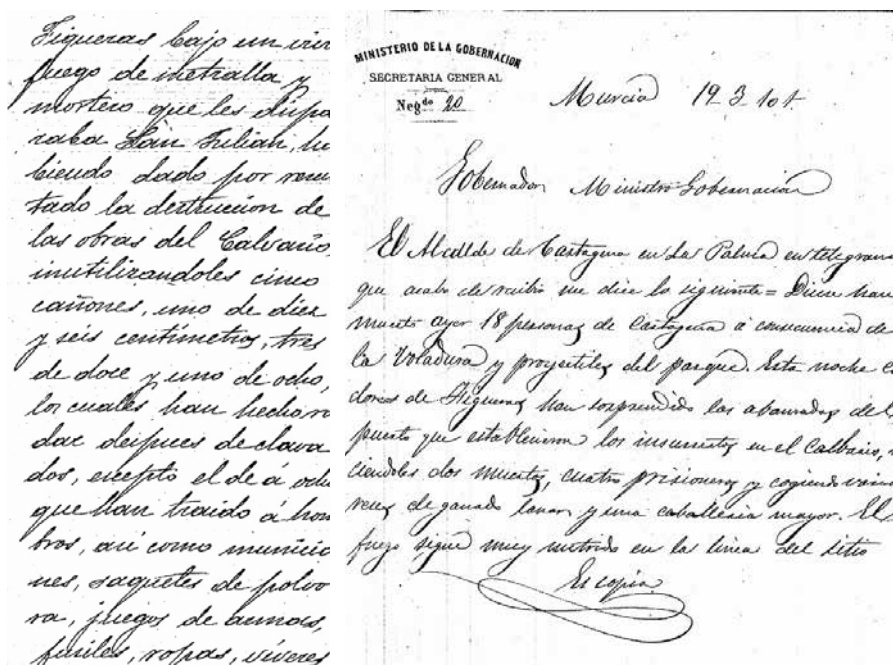 Figueras bajo un viv
fuego de metralla y
mortero que les dispa
raba San Julian, ha
biendo dado por resul
tado la destruccion de
las obras del Calvario,
inutilizandoles cinco
cañones, uno de diez
y seis centimetros, tres
de doce y uno de ocho,
los cuales han hecho ro
dar despues de clava
dos, escepto el de á ocho
que han traido á hom
bros, asi como municio
nes, saquetes de polvo
ra, juegos de armas,
fusiles, ropas, viveres
MINISTERIO DE LA GOBERNACION
SECRETARIA GENERAL
Negdo 20
Murcia 19 3
Gobernador Ministro Gobernacion
El Alcalde de Cartagena en La Palma en telegrama
que acabo de recibir me dice lo siguiente = Dicen han
muerto ayer 18 personas de Cartagena á consecuencia de
la Voladura y proyectiles del parque. Esta noche
dores de Figueras han sorprendido las abanzadas del
puesto que establecieron los insurrectos en el Calbario,
ciendoles dos muertos, cuatro prisioneros y cogiendo
reses de ganado lanar y una caballeria mayor. El
fuego sigue muy nutrido en la linea del sitio
Es copia